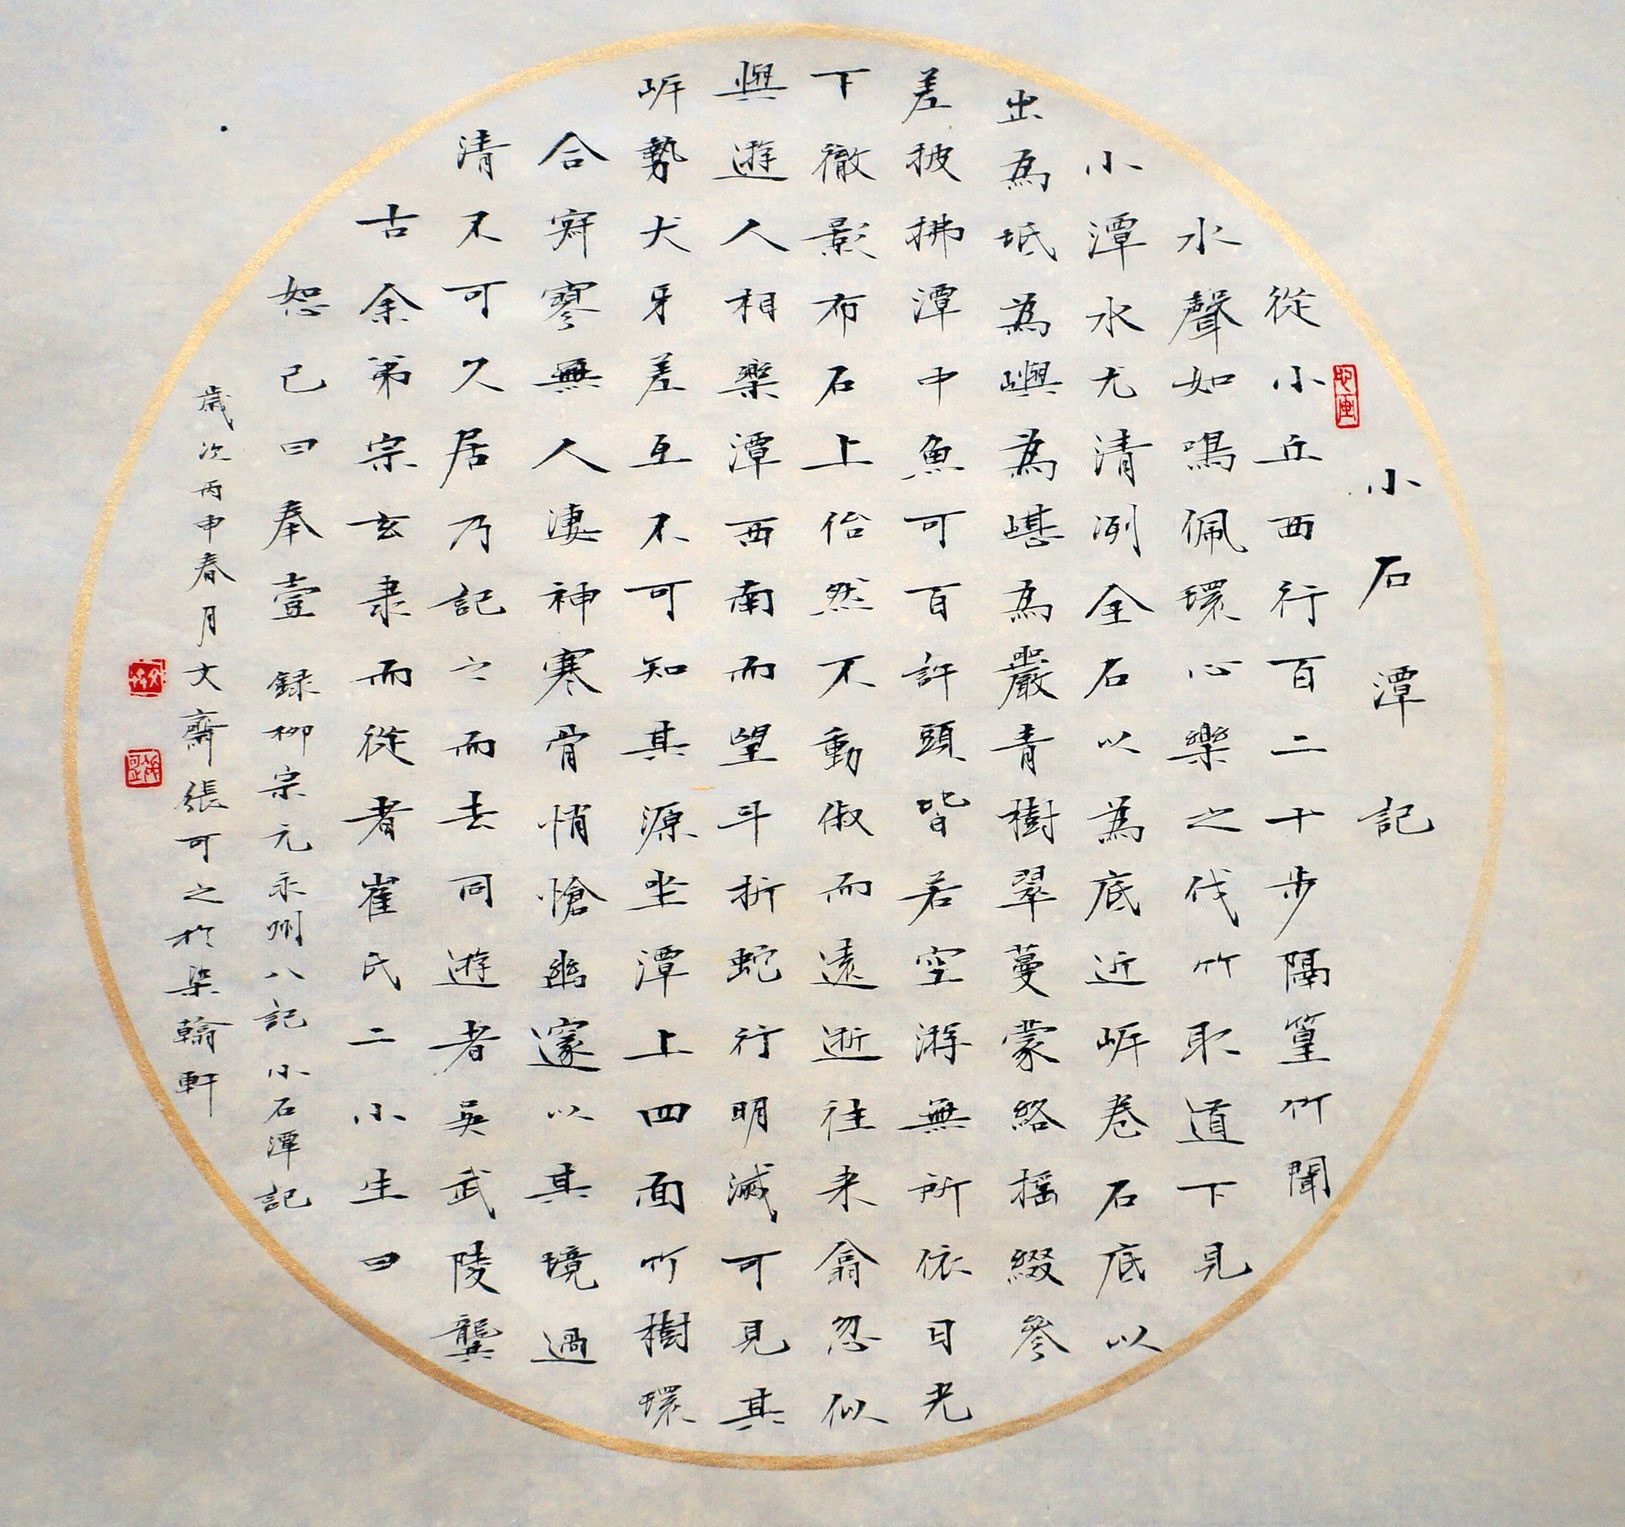 小石潭記
從小丘西行百二十步隔篁竹聞
水聲如鳴佩環心樂之伐竹取道下見
小潭水尤清冽全石以為底近岸卷石底以
出為坻為嶼為嵁為嚴青樹翠蔓蒙絡搖綴參
差披拂潭中魚可百許頭皆若空游無所依日光
下徹影布石上佁然不動俶而遠逝往來翕忽似
與遊人相樂潭西南而望斗折蛇行明滅可見其
岸勢犬牙差互不可知其源坐潭上四面竹樹環
合寂寥無人淒神寒骨悄愴幽邃以其境過
清不可久居乃記之而去同遊者吳武陵龔
古余弟宗玄隸而從者崔氏二小生曰
恕己曰奉壹 錄柳宗元永州八記小石潭記
歲次丙申春月文齋張可之於染翰軒
心画